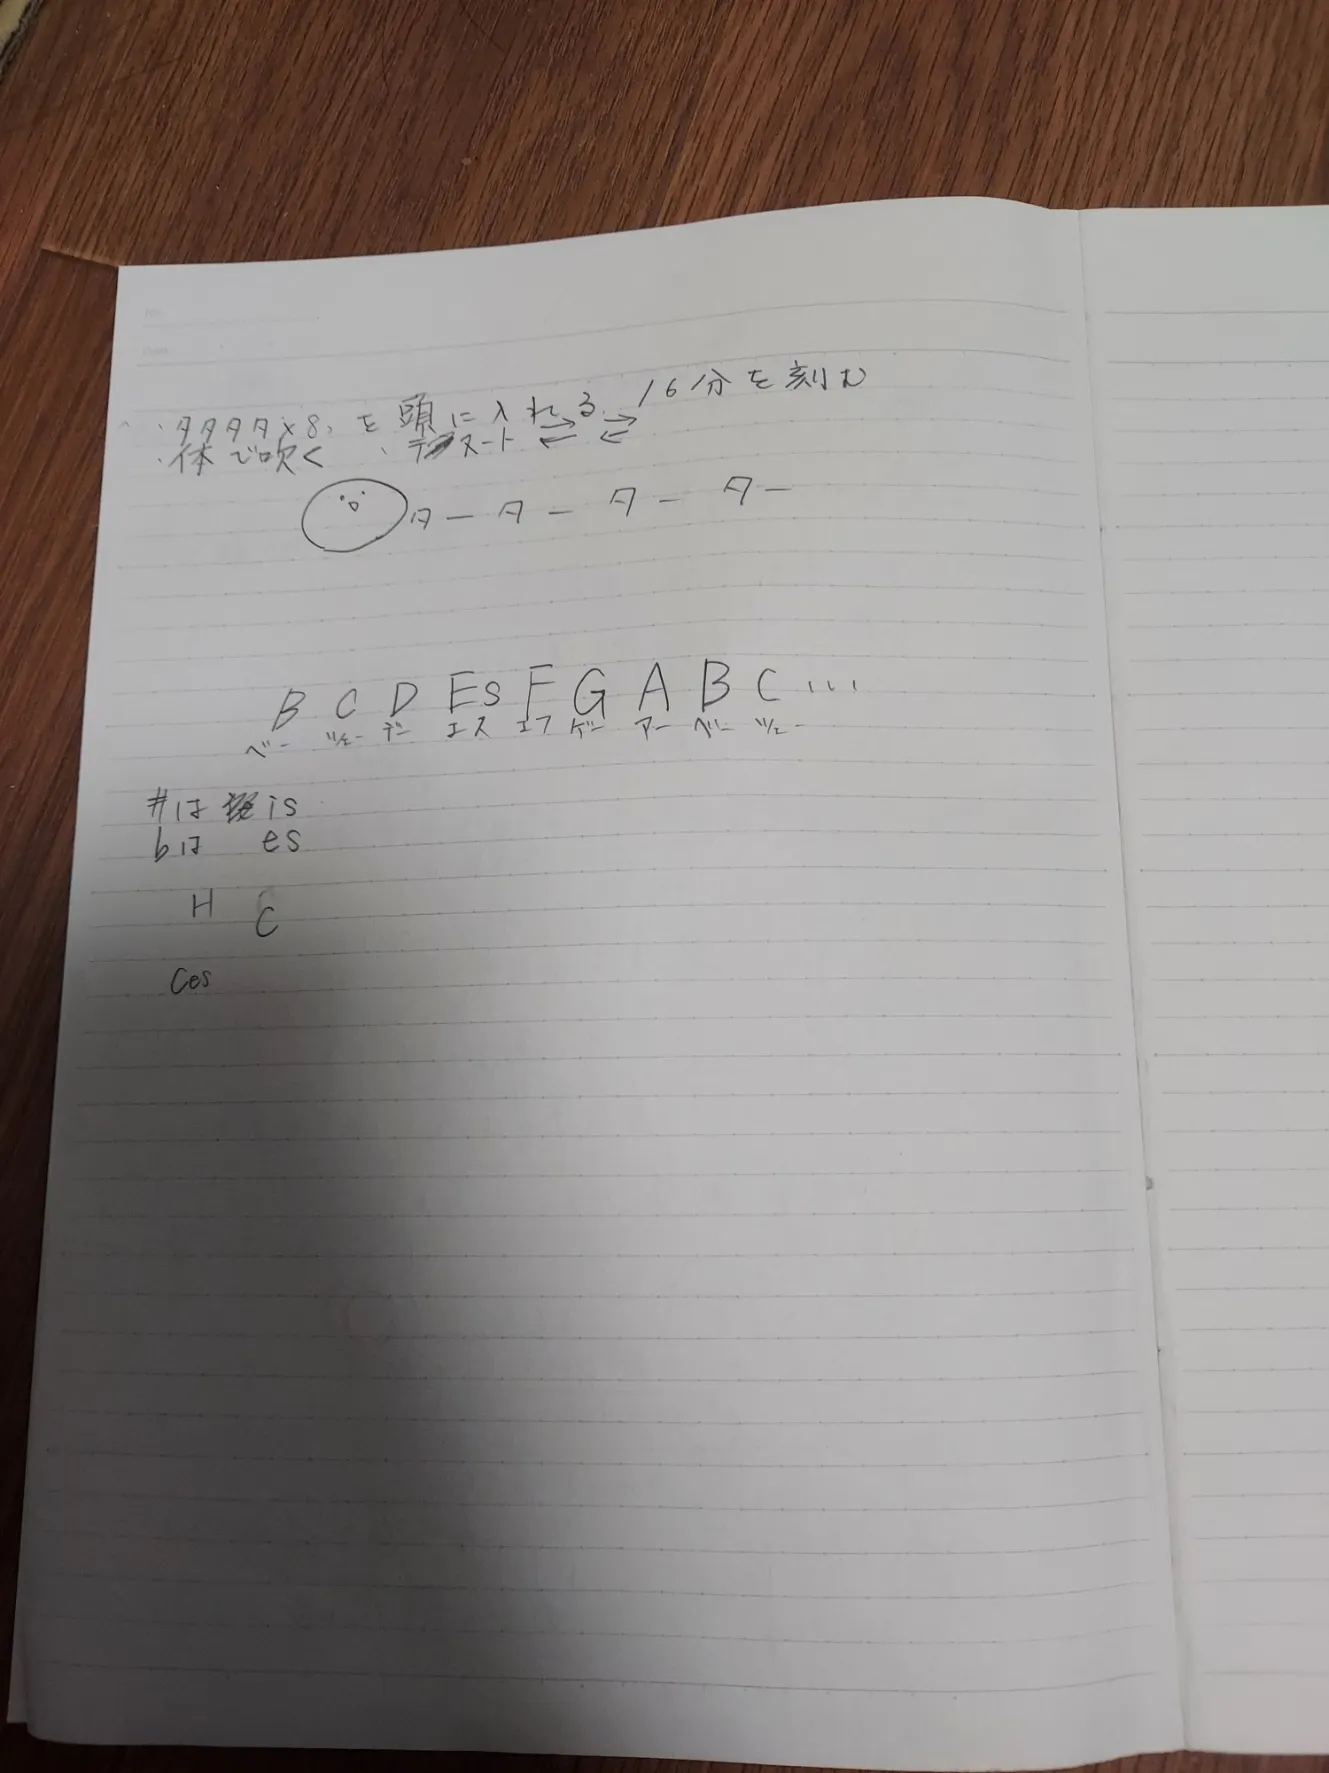 ・タタタタ×8、を頭に入れる 16分を刻む
・体で吹く ・テヌート ⇄ ⇄
ターターターター
B C D Es F G A B C ...
ベー ツェー デー エス エフ ゲー アー ベー ツェー
#は is
bは es
H C
Ces